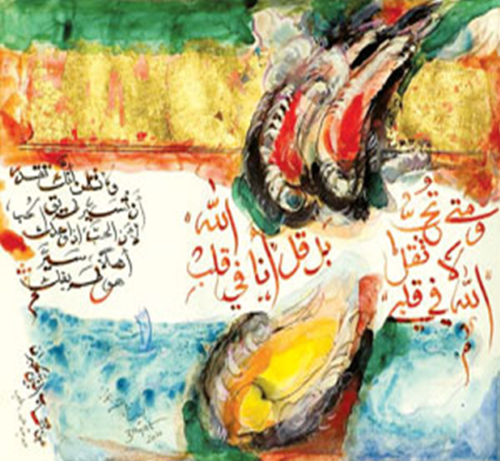 ومتى تحب
لا تقل
الله في قلبي
بل قل أنا في قلب
الله
ولا تظن أنك تقدر
أن تسير طريق الحب
لأن الحب إذا وجدك
أهلاً سير
هو طريقك